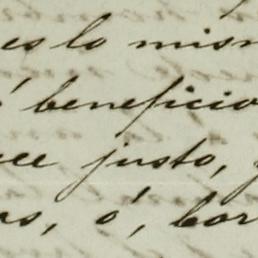 es lo mism
beneficio
ce justo,
os, ó, bor